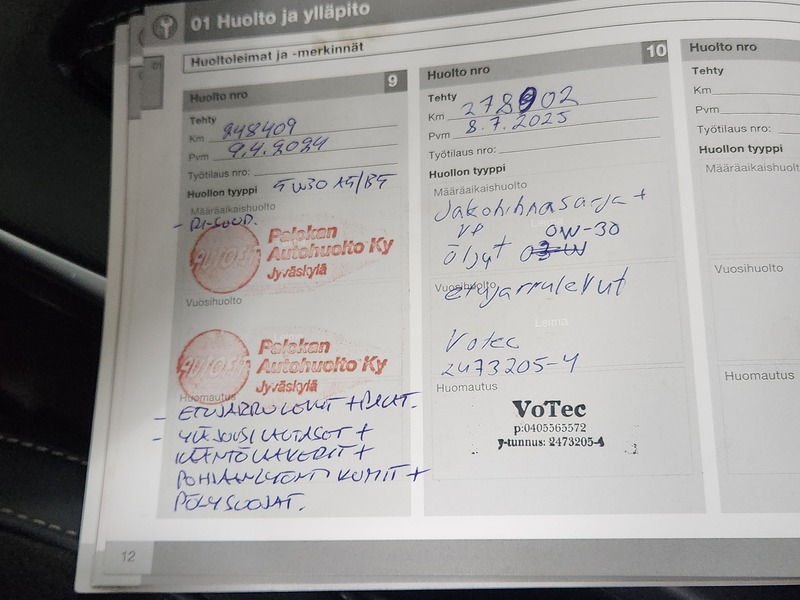 01 Huolto ja ylläpito
Huoltoleimat ja -merkinnät
01
Huolto nro 9
Tehty
Km 248409
Pvm 9.4.2024
Työtilaus nro:
Huollon tyyppi 5W30 A5/B5
Määräaikaishuolto
- RI-SUOD.
AUTOSI
Palokan
Autohuolto Ky
Jyväskylä
Vuosihuolto
AUTOSI
Palokan
Autohuolto Ky
Jyväskylä
Huomautus
- ETUJARRULEVYT + PALAT.
- YLÄJOUSILAUTASET +
KÄÄNTÖLAAKERIT +
POHJAANLYÖNTI KUMIT +
PÖLYSUOJAT.
12
Huolto nro 10
Tehty
Km 278902
Pvm 8.7.2025
Työtilaus nro:
Huollon tyyppi
Määräaikaishuolto
Jakohihnasarja +
VP
Öljyt 0W-30
Vuosihuolto
etujarrulevyt
Leima
Votec
2473205-4
Huomautus
VoTec
p:0405565572
y-tunnus: 2473205-4
Huolto nro
Tehty
Km
Pvm
Työtilaus nro:
Huollon tyyppi
Määräaikaishuolt
Vuosihuolto
Huomautus